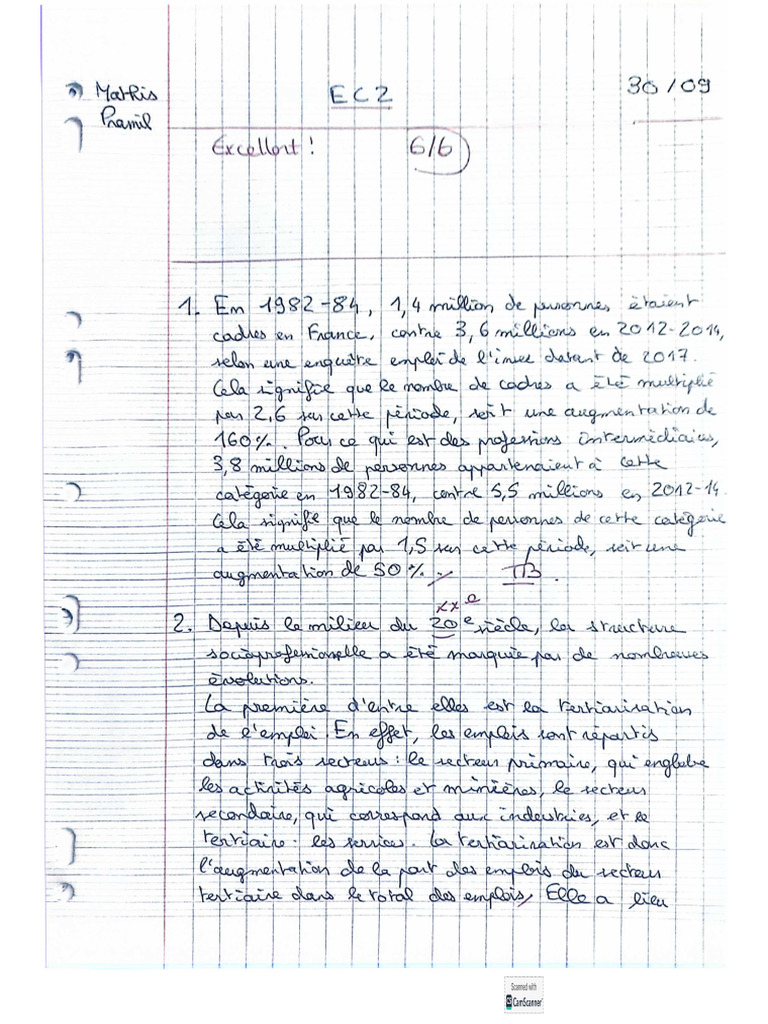 Mathis
Pramil
EC2
30/09
Excellent !
6/6
1. En 1982-84, 1,4 million de personnes étaient
cadres en France, contre 3,6 millions en 2012-2014,
selon une enquête emploi de l'insee datant de 2017.
Cela signifie que le nombre de cadres a été multiplié
par 2,6 sur cette période, soit une augmentation de
160%. Pour ce qui est des professions intermédiaires,
3,8 millions de personnes appartenaient à cette
catégorie en 1982-84, contre 5,5 millions en 2012-14.
Cela signifie que le nombre de personnes de cette catégorie
a été multiplié par 1,5 sur cette période, soit une
augmentation de 50%. TB.
XXe
2. Depuis le milieu du 20e siècle, la structure
socioprofessionelle a été marquée par de nombreuses
évolutions.
La première d'entre elles est la tertiarisation
de l'emploi. En effet, les emplois sont répartis
dans trois secteurs : le secteur primaire, qui englobe
les activités agricoles et minières, le secteur
secondaire, qui correspond aux industries, et le
tertiaire : les services. La tertiarisation est donc
l'augmentation de la part des emplois du secteur
tertiaire dans le total des emplois. Elle a lieu
Scanned with
CS CamScanner